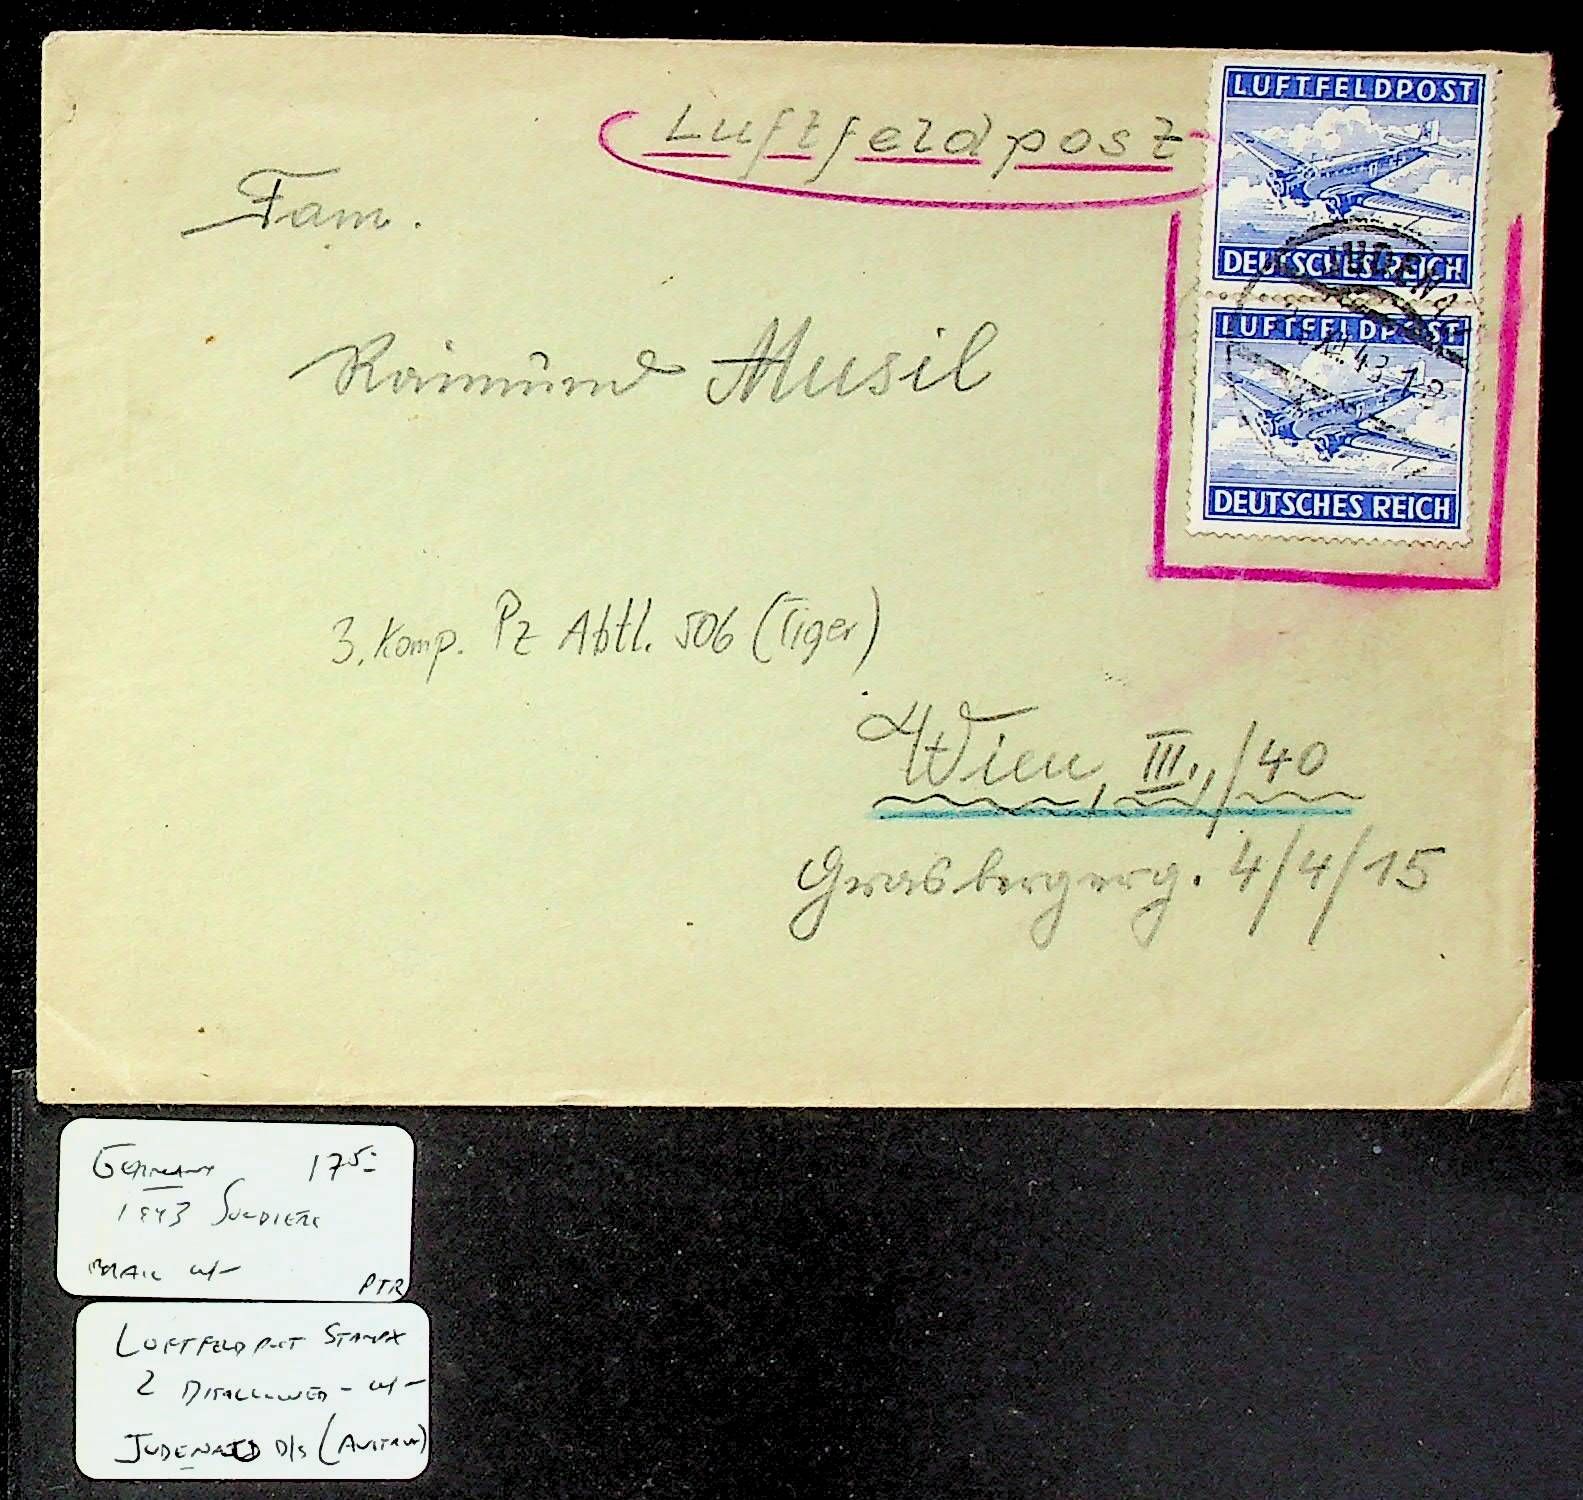 Luftfeldpost
LUFTFELDPOST
DEUTSCHES REICH
LUFTFELDPOST
DEUTSCHES REICH
43
Fam.
Raimund Musil
3. Komp. Pz Abtl. 506 (Tiger)
Wien, III., /40
Grasbergerg. 4/4/15
GERMANY 17 5-
1943 SOLDIERS
MAIL w/-
PTR
LUFTFELDPOST STAMPS
2 DISALLOWED - w/-
JUDENAU D/S (AUSTRIA)